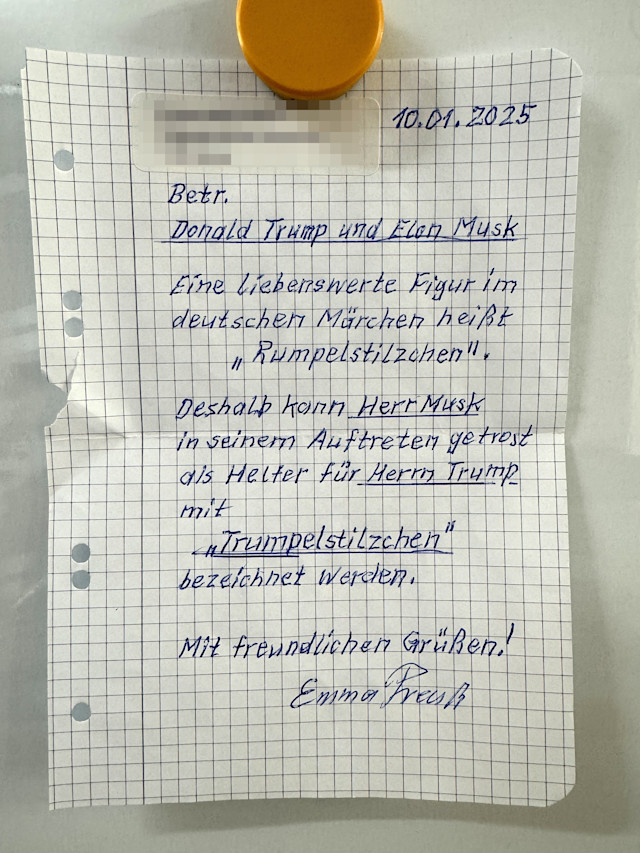 10.01.2025
Betr.
Donald Trump und Elon Musk
Eine liebenswerte Figur im
deutschen Märchen heißt
„Rumpelstilzchen".
Deshalb kann Herr Musk
in seinem Auftreten getrost
als Helfer für Herrn Trump
mit
„Trumpelstilzchen"
bezeichnet werden.
Mit freundlichen Grüßen!
Emma Preuß